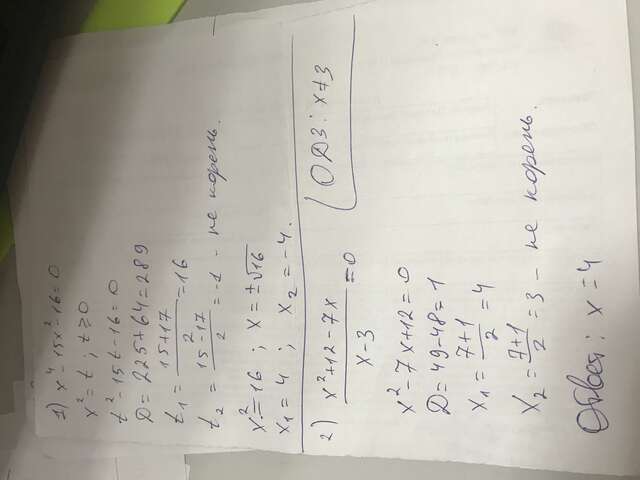 1) x⁴ - 15x² - 16 = 0
x² = t ; t ≥ 0
t² - 15t - 16 = 0
D = 225 + 64 = 289
t₁ = (15 + 17)/2 = 16
t₂ = (15 - 17)/2 = -1 - не корень.
x² = 16 ; x = ±√16
x₁ = 4 ; x₂ = -4.
2) (x² + 12 - 7x)/(x - 3) = 0 ОДЗ: x ≠ 3
x² - 7x + 12 = 0
D = 49 - 48 = 1
x₁ = (7 + 1)/2 = 4
x₂ = (7 + 1)/2 = 3 - не корень.
Ответ: x = 4